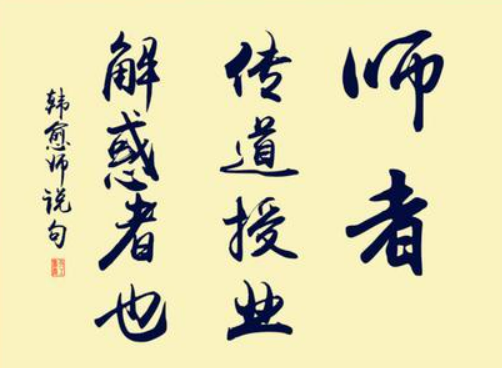 师者
传道授业
解惑者也
韩愈师说句